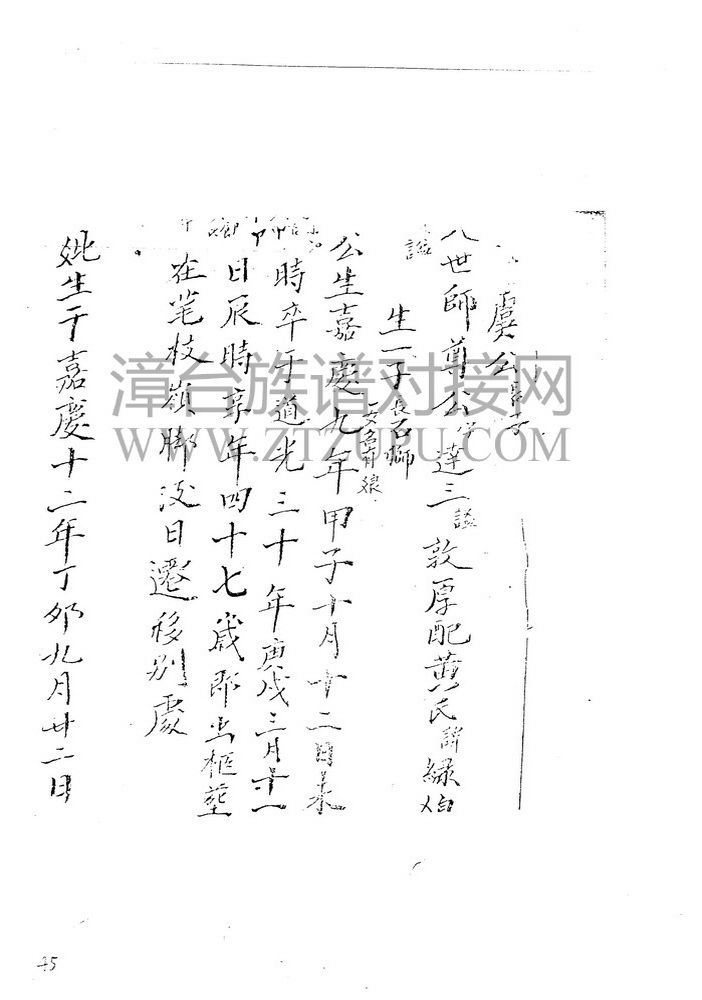 虞公長子
八世師尊公字達三諡敦厚配黄氏諱緑
諡
生一子長石獅
公生嘉慶九年甲子十月十二日未
時卒于道光三十年庚戌三月廿一
日辰時享年四十七歲即出柩塟
在笔枝嶺脚没日遷移别處
妣生于嘉慶十二年丁卯九月廿二日
漳台族谱对接网
WWW.ZTZUPU.COM
45